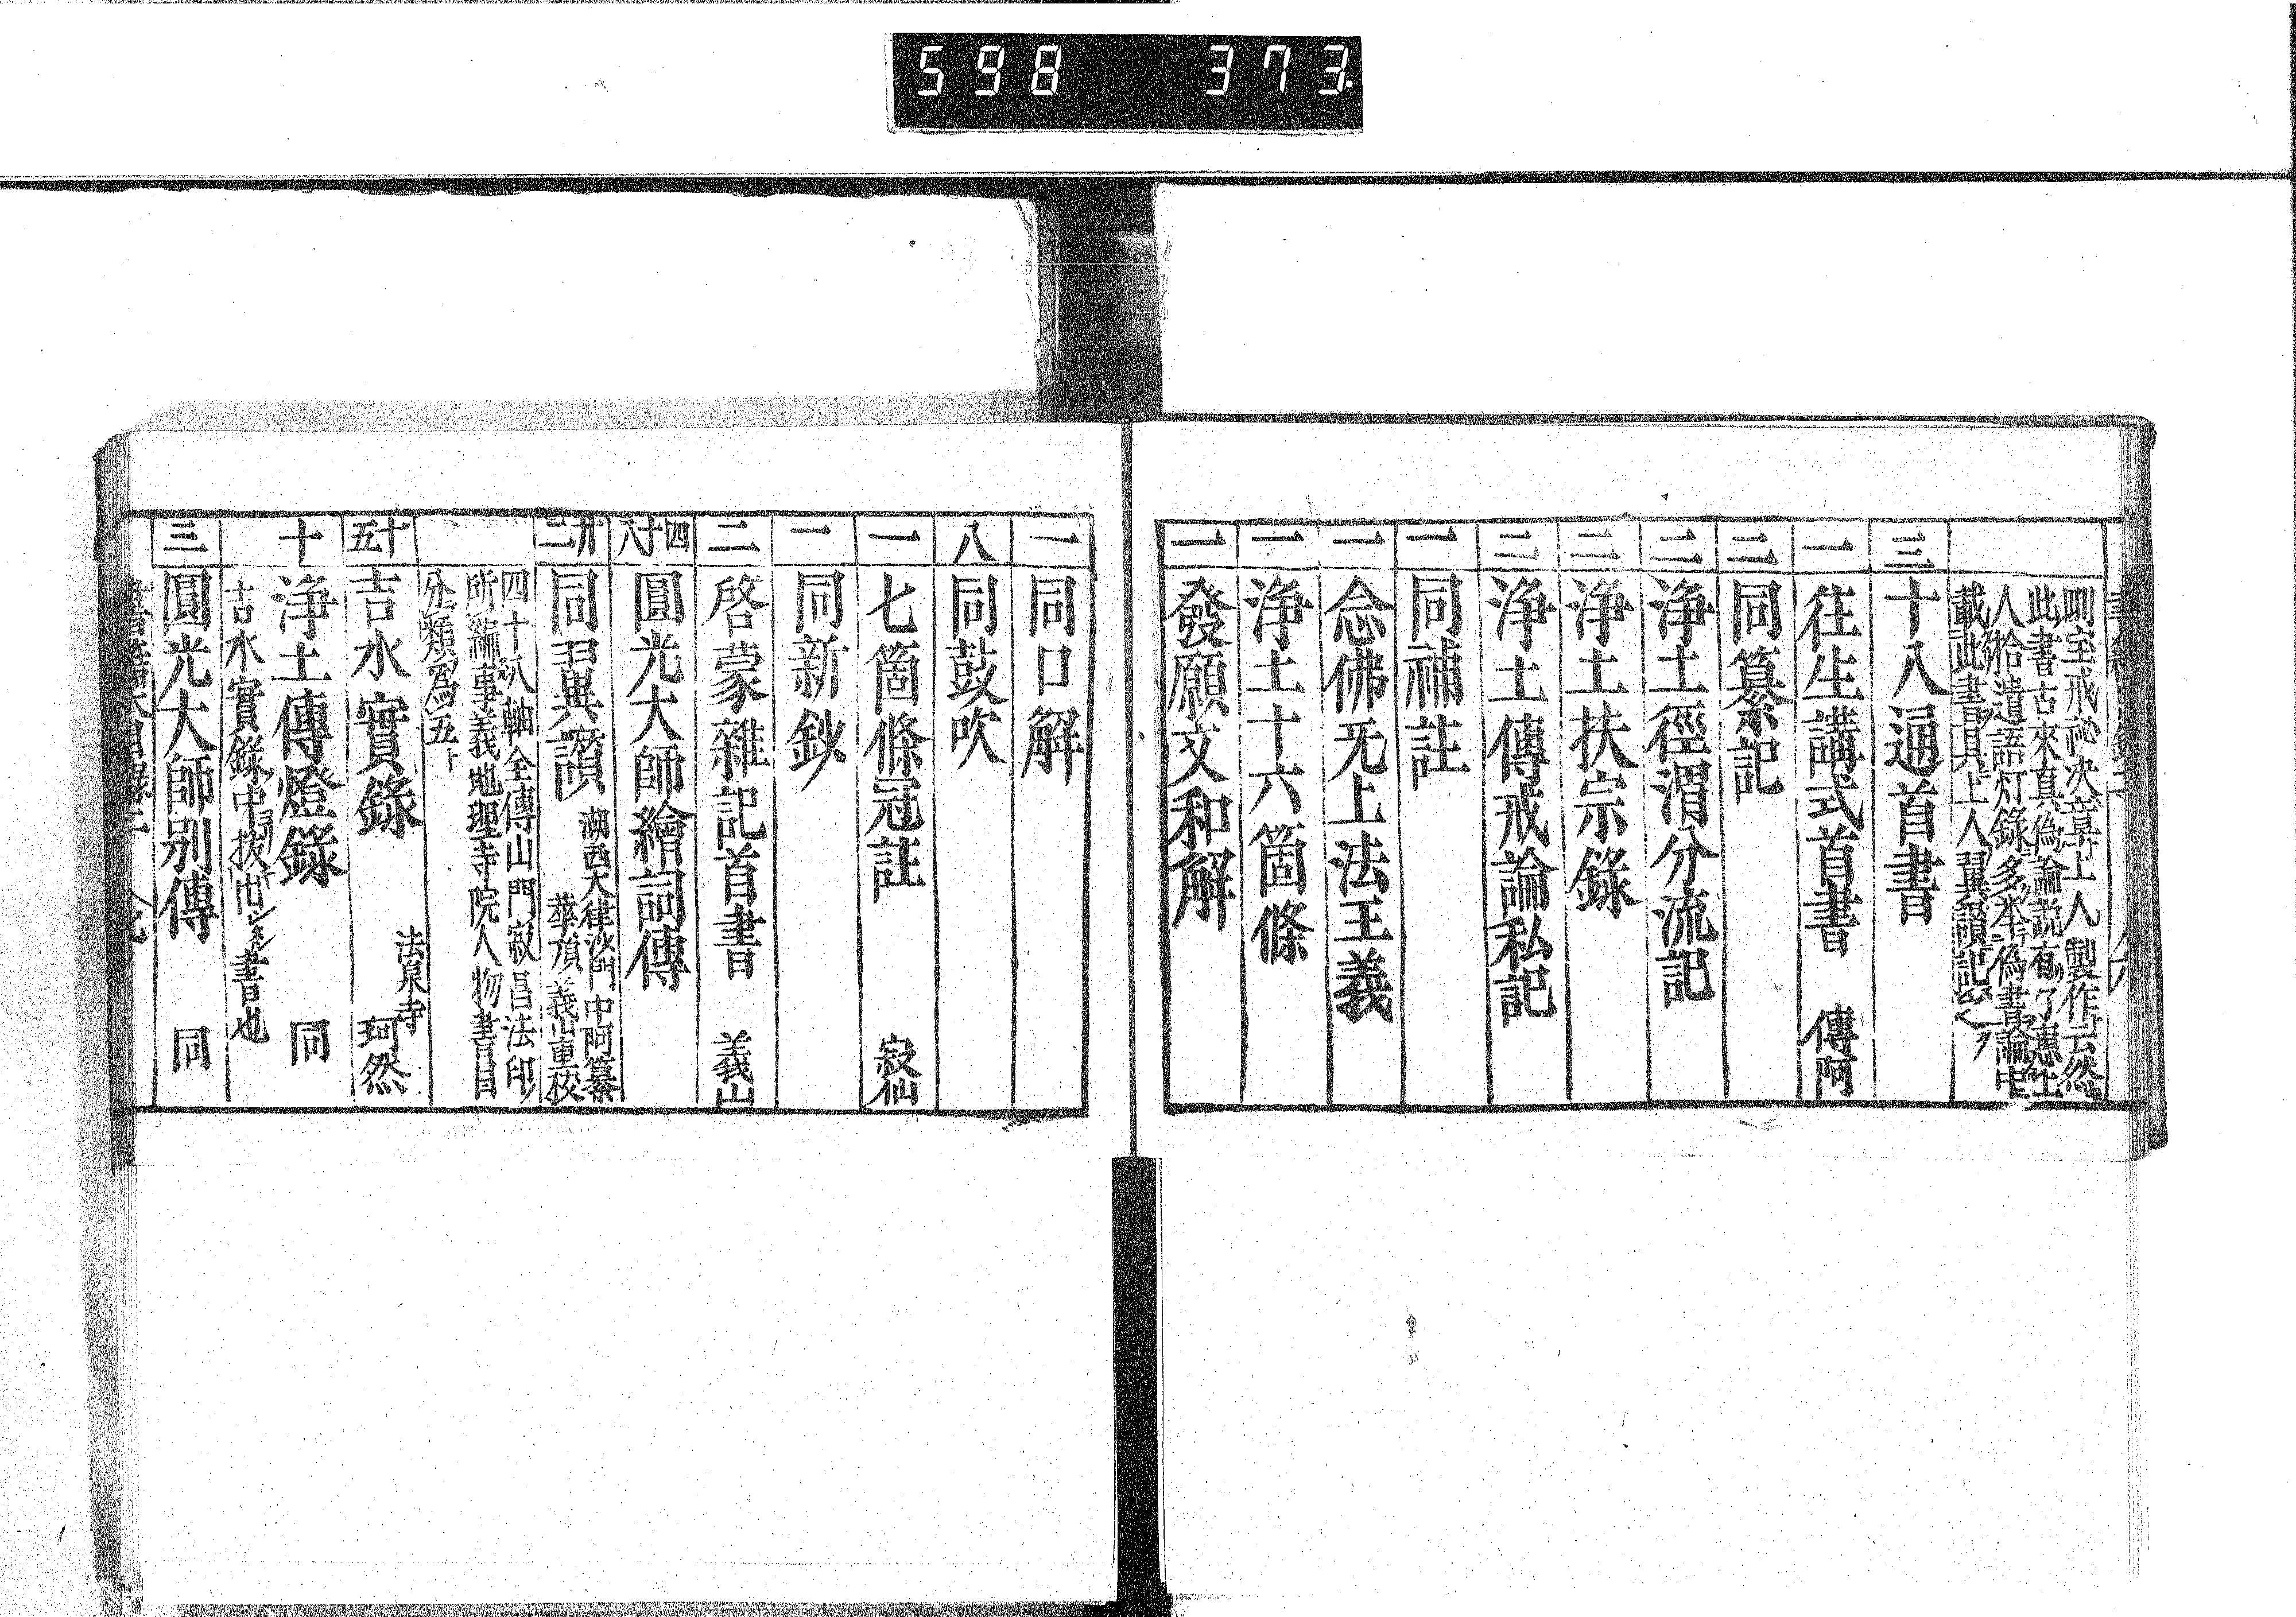 598 373
則宝戒祕决章上人製作云然
此書古來真偽論説有了惠上
人拾遺語灯録多本偽書論中
載此書具上人翼讃記
三 十八通首書
一 往生講式首書 傳阿
三 同纂記
二 浄土徑渭分流記
二 浄土扶宗録
二 浄土傳戒論私記
一 同補註
一 念佛无上法王義
一 浄土十六箇條
一 發願文和解
一 同口解
八 同鼓吹
一 七箇條冠註 寂仙
一 同新鈔
二 啓蒙雜記首書 義山
四十八 圓光大師繪詞傳
卅二 同翼讃 湖西大律沙門中阿纂
華頂義山重校
四十八軸全傳山門寂昌法印
所編事義地理寺院人物書目
分類爲五
十五 吉水實錄 法泉寺 珂然
十 浄土傳燈錄 同
吉水實錄中抜出シタル書也
三 圓光大師别傳 同